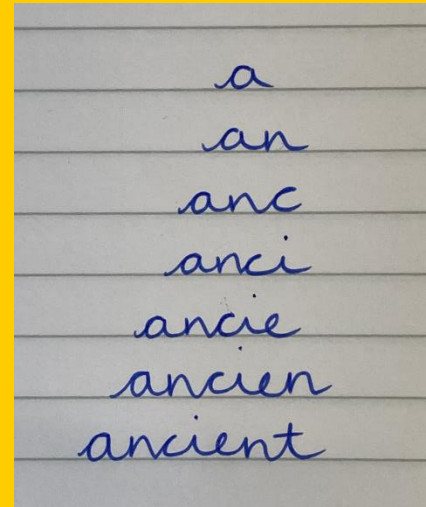 a
an
anc
anci
ancie
ancien
ancient